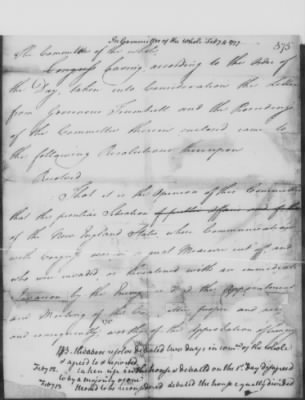 In Committee of the whole Feb 7. 1777
575
The Committee of the whole
Congress having according to the Order of
the Day, taken into Consideration the Letter
from Governour Trumbull and the Proceedings
of the Committee therein enclosed came to
the following Resolutions thereupon
Resolved
That it is the Opinion of this Committee
that the peculiar Situation
of the New England States whose Communication
with Congress was in a great Measure cut off and
who were invaded or threatned with an immediate
Invasion by the Enemy the Appointment
and Meeting of the Committee proper and
and consequently worthy of the Approbation of Congress
NB. the above resolve debated two days in com of the whole
& agreed to & reported
Feby 12. taken up in the house & debated on the 1st day & disagreed
to by a majority of one
Feby 13 Mov'd to be recommitted debated the house equally divided